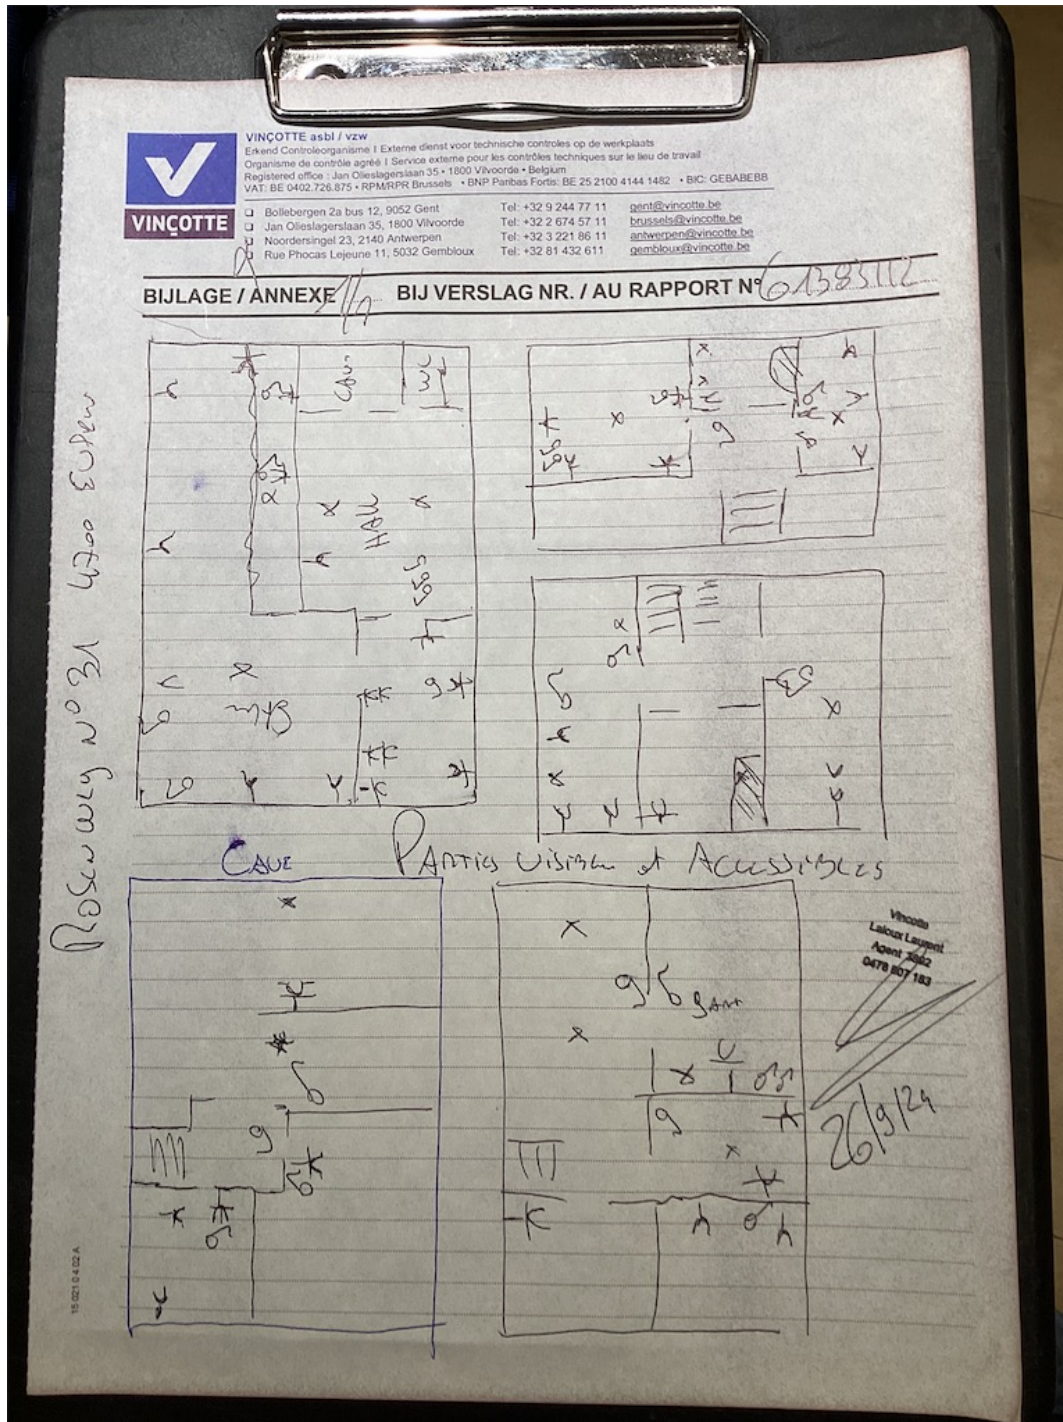 VINÇOTTE
VINÇOTTE asbl / vzw
Erkend Controleorganisme I Externe dienst voor technische controles op de werkplaats
Organisme de contrôle agréé I Service externe pour les contrôles techniques sur le lieu de travail
Registered office : Jan Olieslagerslaan 35 • 1800 Vilvoorde • Belgium
VAT: BE 0402.726.875 • RPM/RPR Brussels • BNP Paribas Fortis: BE 25 2100 4144 1482 • BIC: GEBABEBB
Bollebergen 2a bus 12, 9052 Gent Tel: +32 9 244 77 11 gent@vincotte.be
Jan Olieslagerslaan 35, 1800 Vilvoorde Tel: +32 2 674 57 11 brussels@vincotte.be
Noordersingel 23, 2140 Antwerpen Tel: +32 3 221 86 11 antwerpen@vincotte.be
Rue Phocas Lejeune 11, 5032 Gembloux Tel: +32 81 432 611 gembloux@vincotte.be
BIJLAGE / ANNEXE BIJ VERSLAG NR. / AU RAPPORT N°
N° 31 4700 EUPEN
WC
HALL
CAVE
PARTIES VISIBLE et ACCESSIBLES
Vincotte
Laloux Laurent
Agent
0478 807 183
26/9/24
15 021 0 4 02 A